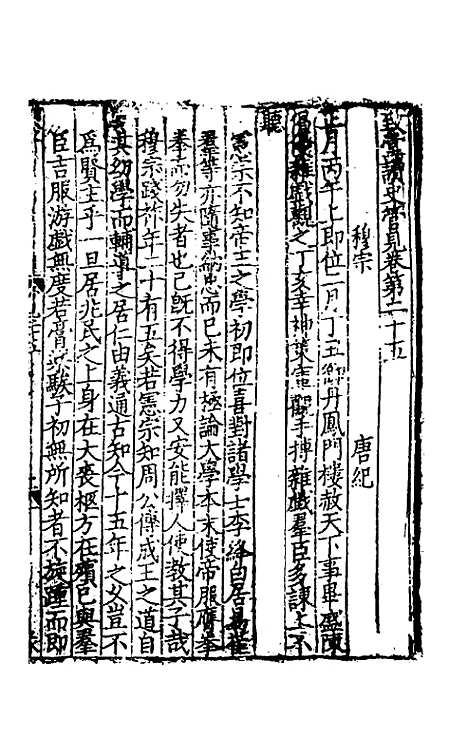 致堂讀史管見卷第二十五
穆宗　唐紀
正月丙午上即位二月丁丑御丹鳳門樓赦天下事畢盛陳
倡優雜戲觀之丁亥幸神策軍觀手搏雜戲羣臣多諫上不
聽
憲宗不知帝王之學初即位喜對諸學士李絳白居易崔
羣等亦隨事納忠而已未有極論大學本末使帝服膺拳
拳而勿失者也已旣不得學力又安能擇人使教其子哉
穆宗踐祚年二十有五矣若憲宗知周公傅成王之道自
其幼學而輔導之居仁由義通古知今十五年之久豈不
爲賢主乎一旦居兆民之上身在大喪柩方在殯已與羣
臣吉服游戲無度若膏粱騃子初無所知者不旋踵而即